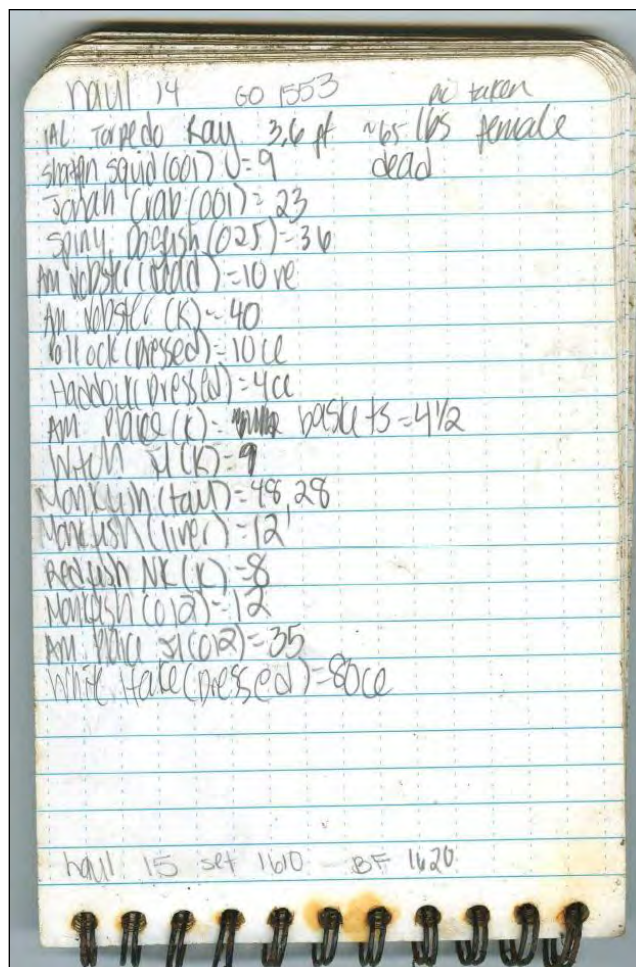 haul 14 GO 1553 pic taken
Atl Torpedo Ray 3.6 ft ~65 lbs female
shortfin squid (001) = 9 dead
Jonah Crab (001) = 23
Spiny Dogfish (025) = 36
Am Lobster (dead) = 10 ve
Am Lobster (K) = 40
Pollock (Dressed) = 10 ce
Haddock (Dressed) = 4 ce
Am Plaice (K) = baskets = 4 1/2
Witch Fl (K) = 9
Monkfish (tail) = 48, 28
Monkfish (liver) = 12
Redfish NK (K) = 8
Monkfish (012) = 12
Am Plaice Fl (012) = 35
White Hake (Dressed) = 80 ce
haul 15 set 1610 BF 1620